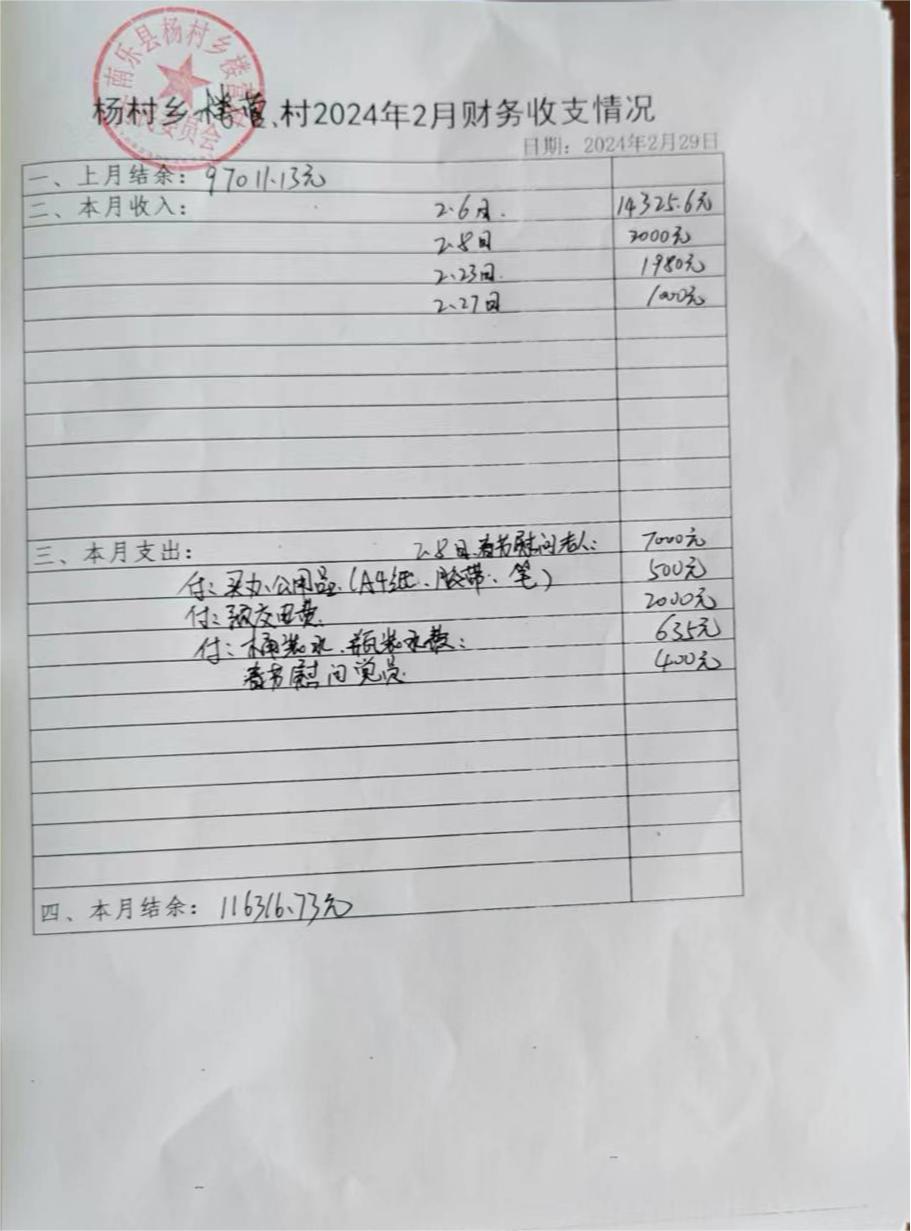 南乐县杨村乡楼营村
委员会
杨村乡楼营、村2024年2月财务收支情况
日期：2024年2月29日
一、上月结余：97011.13元
二、本月收入： 2.6日. 14325.6元
2.8日 2000元
2.23日. 1980元
2.27日 1000元
三、本月支出： 2.8日春节慰问老人： 7000元
付：买办公用品（A4纸、胶带、笔） 500元
付：预交电费 2000元
付：桶装水、瓶装水费： 635元
春节慰问党员 400元
四、本月结余：116316.73元